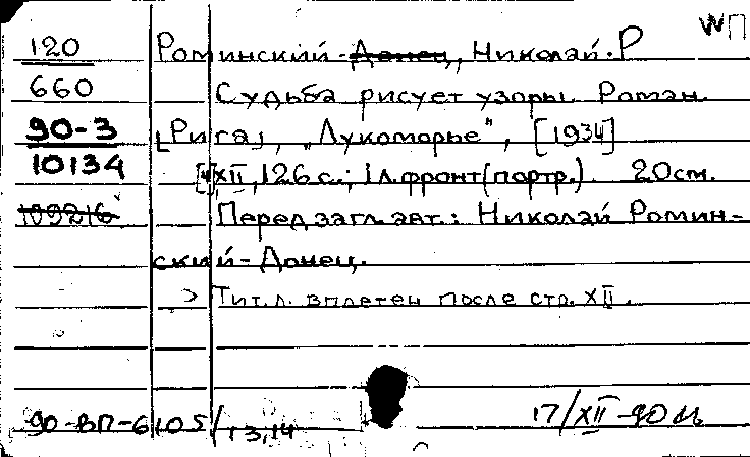 WП
120 Роминский-Донец, Николай. Р
660 Судьба рисует узоры. Роман.
90-3 [Рига], "Лукоморье", [1934]
10134 XII, 126 с.; 1 л. фронт (портр.). 20 см.
109216 Перед загл. авт.: Николай Ромин-
ский-Донец.
Тит. л. вплетен после стр. XII.
90-ВП-6105/13,14 17/XII-90